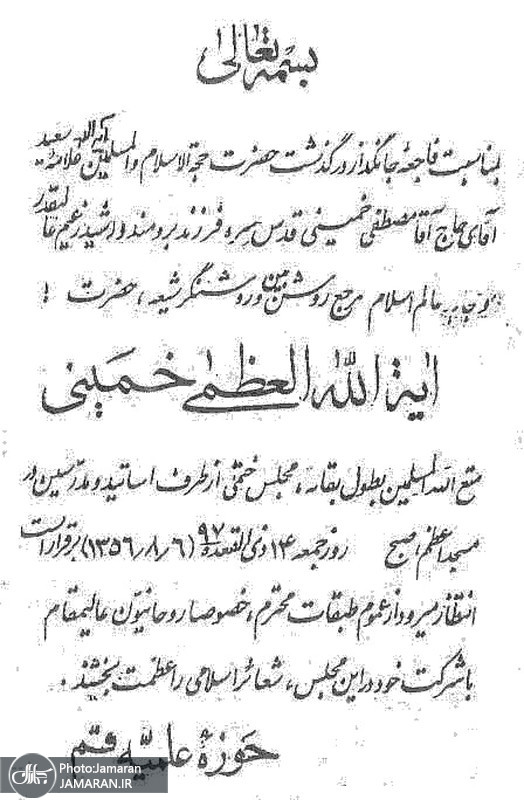 بسمه تعالی
بمناسبت فاجعهٔ جانگداز درگذشت حضرت حجة الاسلام والمسلمین آیة الله سعید علامه
آقای حاج آقا مصطفی خمینی قدس سره فرزند برومند و رشید زعیم عالیقدر
عالم اسلام مرجع روشن بین و روشنگر شیعه، حضرت
آیة الله العظمی خمینی
متع الله المسلمین بطول بقائه، مجلس ختمی از طرف اساتید و مدرسین در
مسجد اعظم، صبح روز جمعه ۱۴ ذی القعده ۹۷ (۱۳۵۶/۸/۶) برقرار است
انتظار میرود از عموم طبقات محترم، خصوصا روحانیون عالیمقام
با شرکت خود در این مجلس، شعائر اسلامی را عظمت بخشند.
حوزهٔ علمیّه قم
Photo:Jamaran
JAMARAN.IR